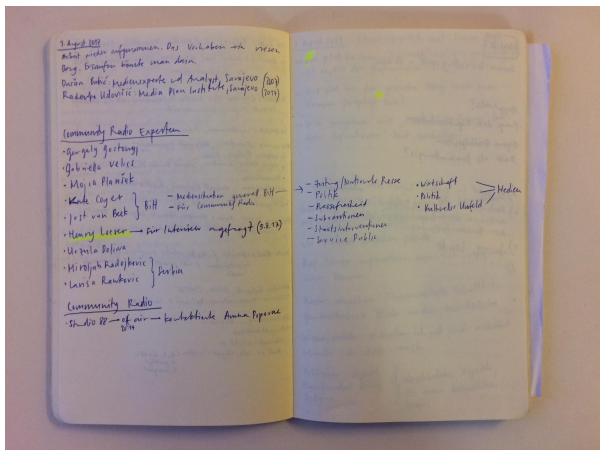 9. August 2017
Arbeit wieder aufgenommen. Das Vorhaben ein riesen
Berg. Ersaufen könnte man darin.
Dušan Babić: Medienexperte und Analyst, Sarajevo (2017)
Radenko Udovičić: Media Plan Institute, Sarajevo (2017)
Community Radio Experten
· Gergely Gosztonyi
· Gabriella Velics
· Mojca Planšek
· Kate Coyer
· Jost van Beek
} BiH
– Mediensituation generell BiH
– Für Community Radio
· Henry Loeser → für Interview angefragt (9.8.17)
· Urszula Doliwa
· Miroljub Radojkovic
· Larisa Rankovic
} Serbien
Community Radio
· Studio 88 → off air → kontaktierte Amna Popovac
2014
→ – Zeitung/Nationale Presse
– Politik
– Pressefreiheit
– Subventionen
– Staatsinterventionen
– Service Public
· Wirtschaft
· Politik
· Kulturelles Umfeld
Medien